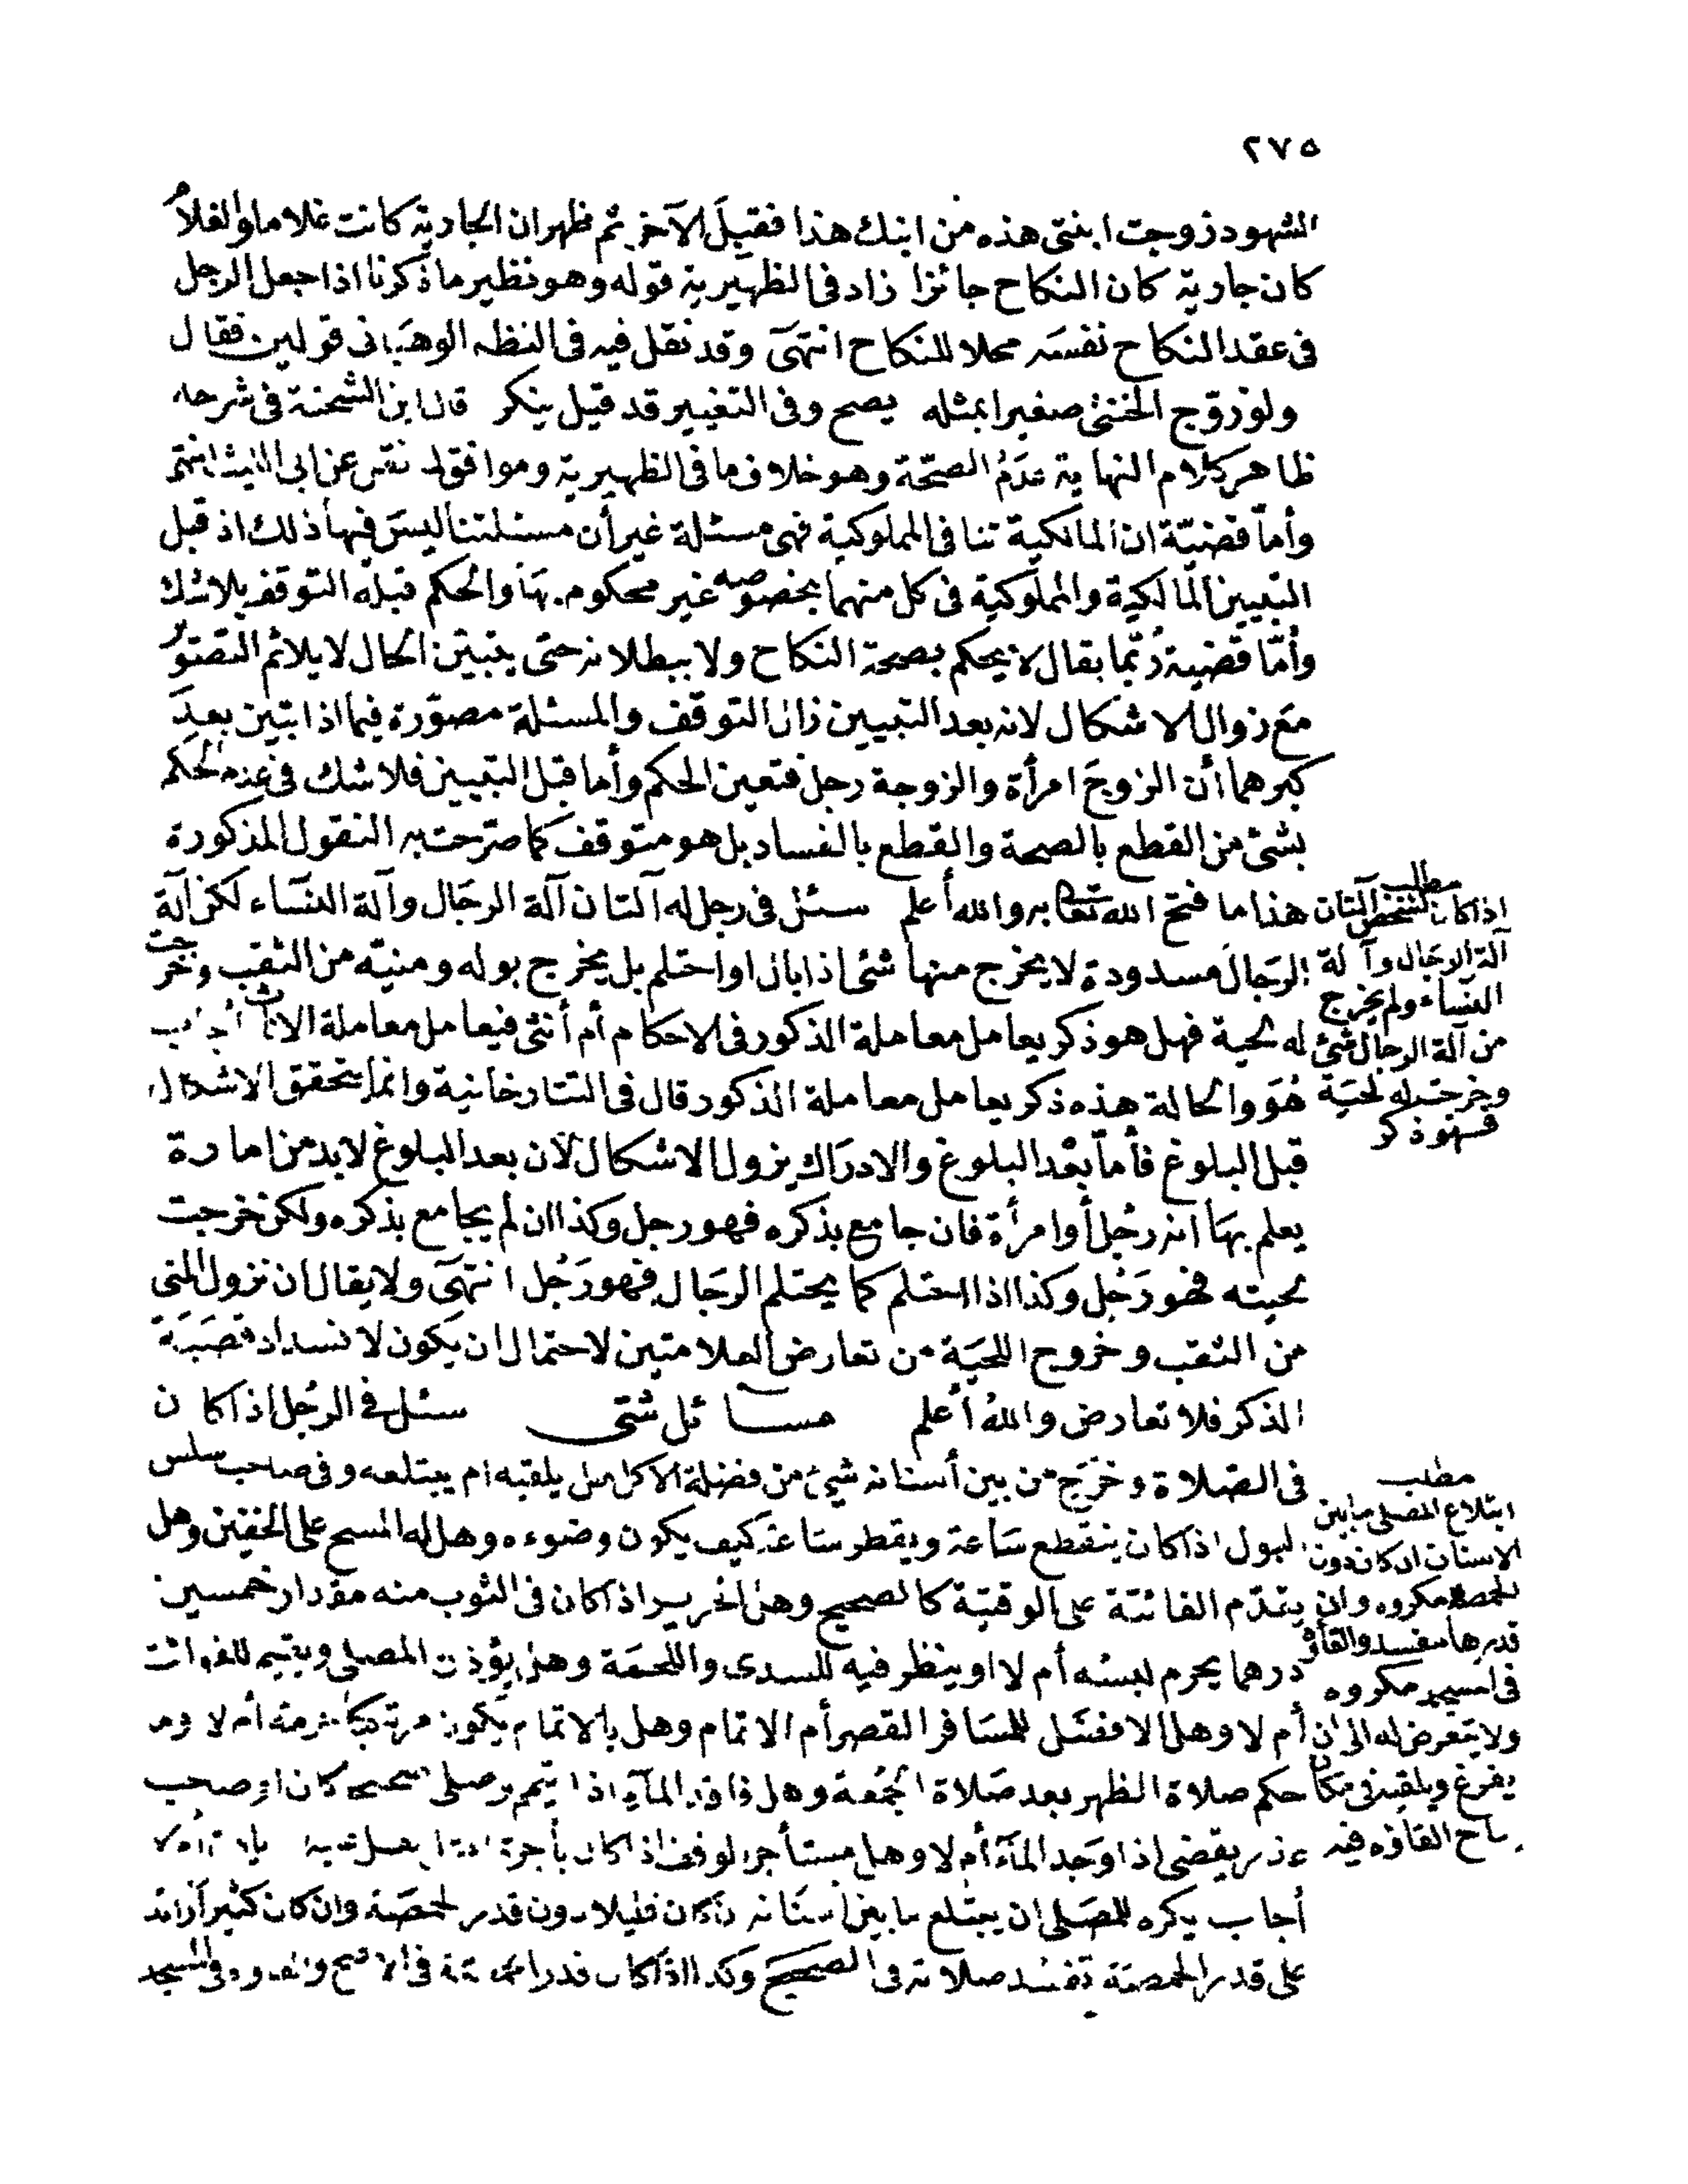 ٢٧٥
الشهود زوجت ابنتى هذه من ابنك هذا فقبل الآخر ثم ظهر ان الجارية كانت غلاما والغلام
كان جارية كان النكاح جائزا زاد فى الظهيرية قوله وهو نظير ما ذكرنا اذا جعل الرجل
فى عقد النكاح نفسه محلا للنكاح انتهى وقد نقل فيه فى النظم الوهبانى قولين فقال
ولو زوّج الخنثى صغيرا بمثله يصح وفى التغيير قد قيل ينكر قال ابن الشحنة فى شرحه
ظاهر كلام النهاية عدم الصحّة وهو خلاف ما فى الظهيرية وموافق لما نقل عن ابى الليث انتهى
وأما قضيّة ان المالكية تنافى المملوكية فهى مسئلة غير أن مسئلتنا ليس فيها ذلك اذ قبل
التبيين المالكية والمملوكية فى كل منهما بخصوصه غير محكوم بها والحكم قبله التوقف بلا شك
وأمّا قضية ربّما يقال لا يحكم بصحة النكاح ولا ببطلانه حتى يتبيّن الحال لا يلائم التصوّر
مع زوال الاشكال لانه بعد التبيين زال التوقف والمسئلة مصوّرة فيما اذا تبيّن بعد
كبرهما أن الزوج امرأة والزوجة رجل فتعين الحكم وأما قبل التبيين فلا شك فى عدم الحكم
بشئ من القطع بالصحة والقطع بالفساد بل هو متوقف كما صرّحت به النقول المذكورة
هذا ما فتح الله تعالى به والله أعلم سئل فى رجل له آلتان آلة الرجال وآلة النساء لكن آلة
الرجال مسدودة لا يخرج منها شئ اذا بال او احتلم بل يخرج بوله ومنيّه من الثقب وخرجت
له لحية فهل هو ذكر يعامل معاملة الذكور فى الاحكام أم أنثى فيعامل معاملة الاناث أجاب
هو والحالة هذه ذكر يعامل معاملة الذكور قال فى التتارخانية وانما يتحقق الاشكال
قبل البلوغ فأمّا بعد البلوغ والادراك يزول الاشكال لأن بعد البلوغ لابد من امارة
يعلم بها انه رجل أو امرأة فان جامع بذكره فهو رجل وكذا ان لم يجامع بذكره ولكن خرجت
لحيته فهو رجل وكذا اذا احتلم كما يحتلم الرجال فهو رجل انتهى ولا يقال ان نزول المنى
من الثقب وخروج اللحية من تعارض العلامتين لاحتمال ان يكون لانسداد قصبة
الذكر فلا تعارض والله أعلم مسائل شتى سئل فى الرجل اذا كان
فى الصلاة وخرج من بين أسنانه شئ من فضلة الاكل هل يلقيه ام يبتلعه وفى صاحب سلس
البول اذا كان ينقطع ساعة ويقطر ساعة كيف يكون وضوءه وهل له المسح على الخفين وهل
يقدّم الفائتة على الوقتية كالصحيح وهل الحرير اذا كان فى الثوب منه مقدار خمسين
درهما يحرم لبسه أم لا او ينظر فيه للسدى واللحمة وهل يؤذن المصلى ويقيم للفوائت
أم لا وهل الافضل للمسافر القصر أم الاتمام وهل بالاتمام يكون مرتكبا حرمة أم لا وما
حكم صلاة الظهر بعد صلاة الجمعة وهل فاقد الماء اذا تيمم وصلى صحيحا كان او صاحب
عذر يقضى اذا وجد الماء أم لا وهل مستأجر الوقف اذا كان بأجرة
أجاب يكره للمصلى ان يبتلع ما بين اسنانه ان كان قليلا دون قدر الحمصة وان كان كثيرا زائدا
على قدر الحمصة تفسد صلاته فى الصحيح وكذا اذا كان قدر الحمصة فى الاصح والقاؤه فى المسجد
مطلب
اذا كان لشخص آلتان
آلة الرجال وآلة
النساء ولم يخرج
من آلة الرجال شئ
وخرجت له لحية
فهو ذكر
مطلب
ابتلاع المصلى ما بين
الاسنان ان كان دون
الحمصة مكروه وان
قدرها مفسد والقاؤه
فى المسجد مكروه
ولا يتعرض له الى ان
يفرغ ويلقيه فى مكان
يباح القاؤه فيه